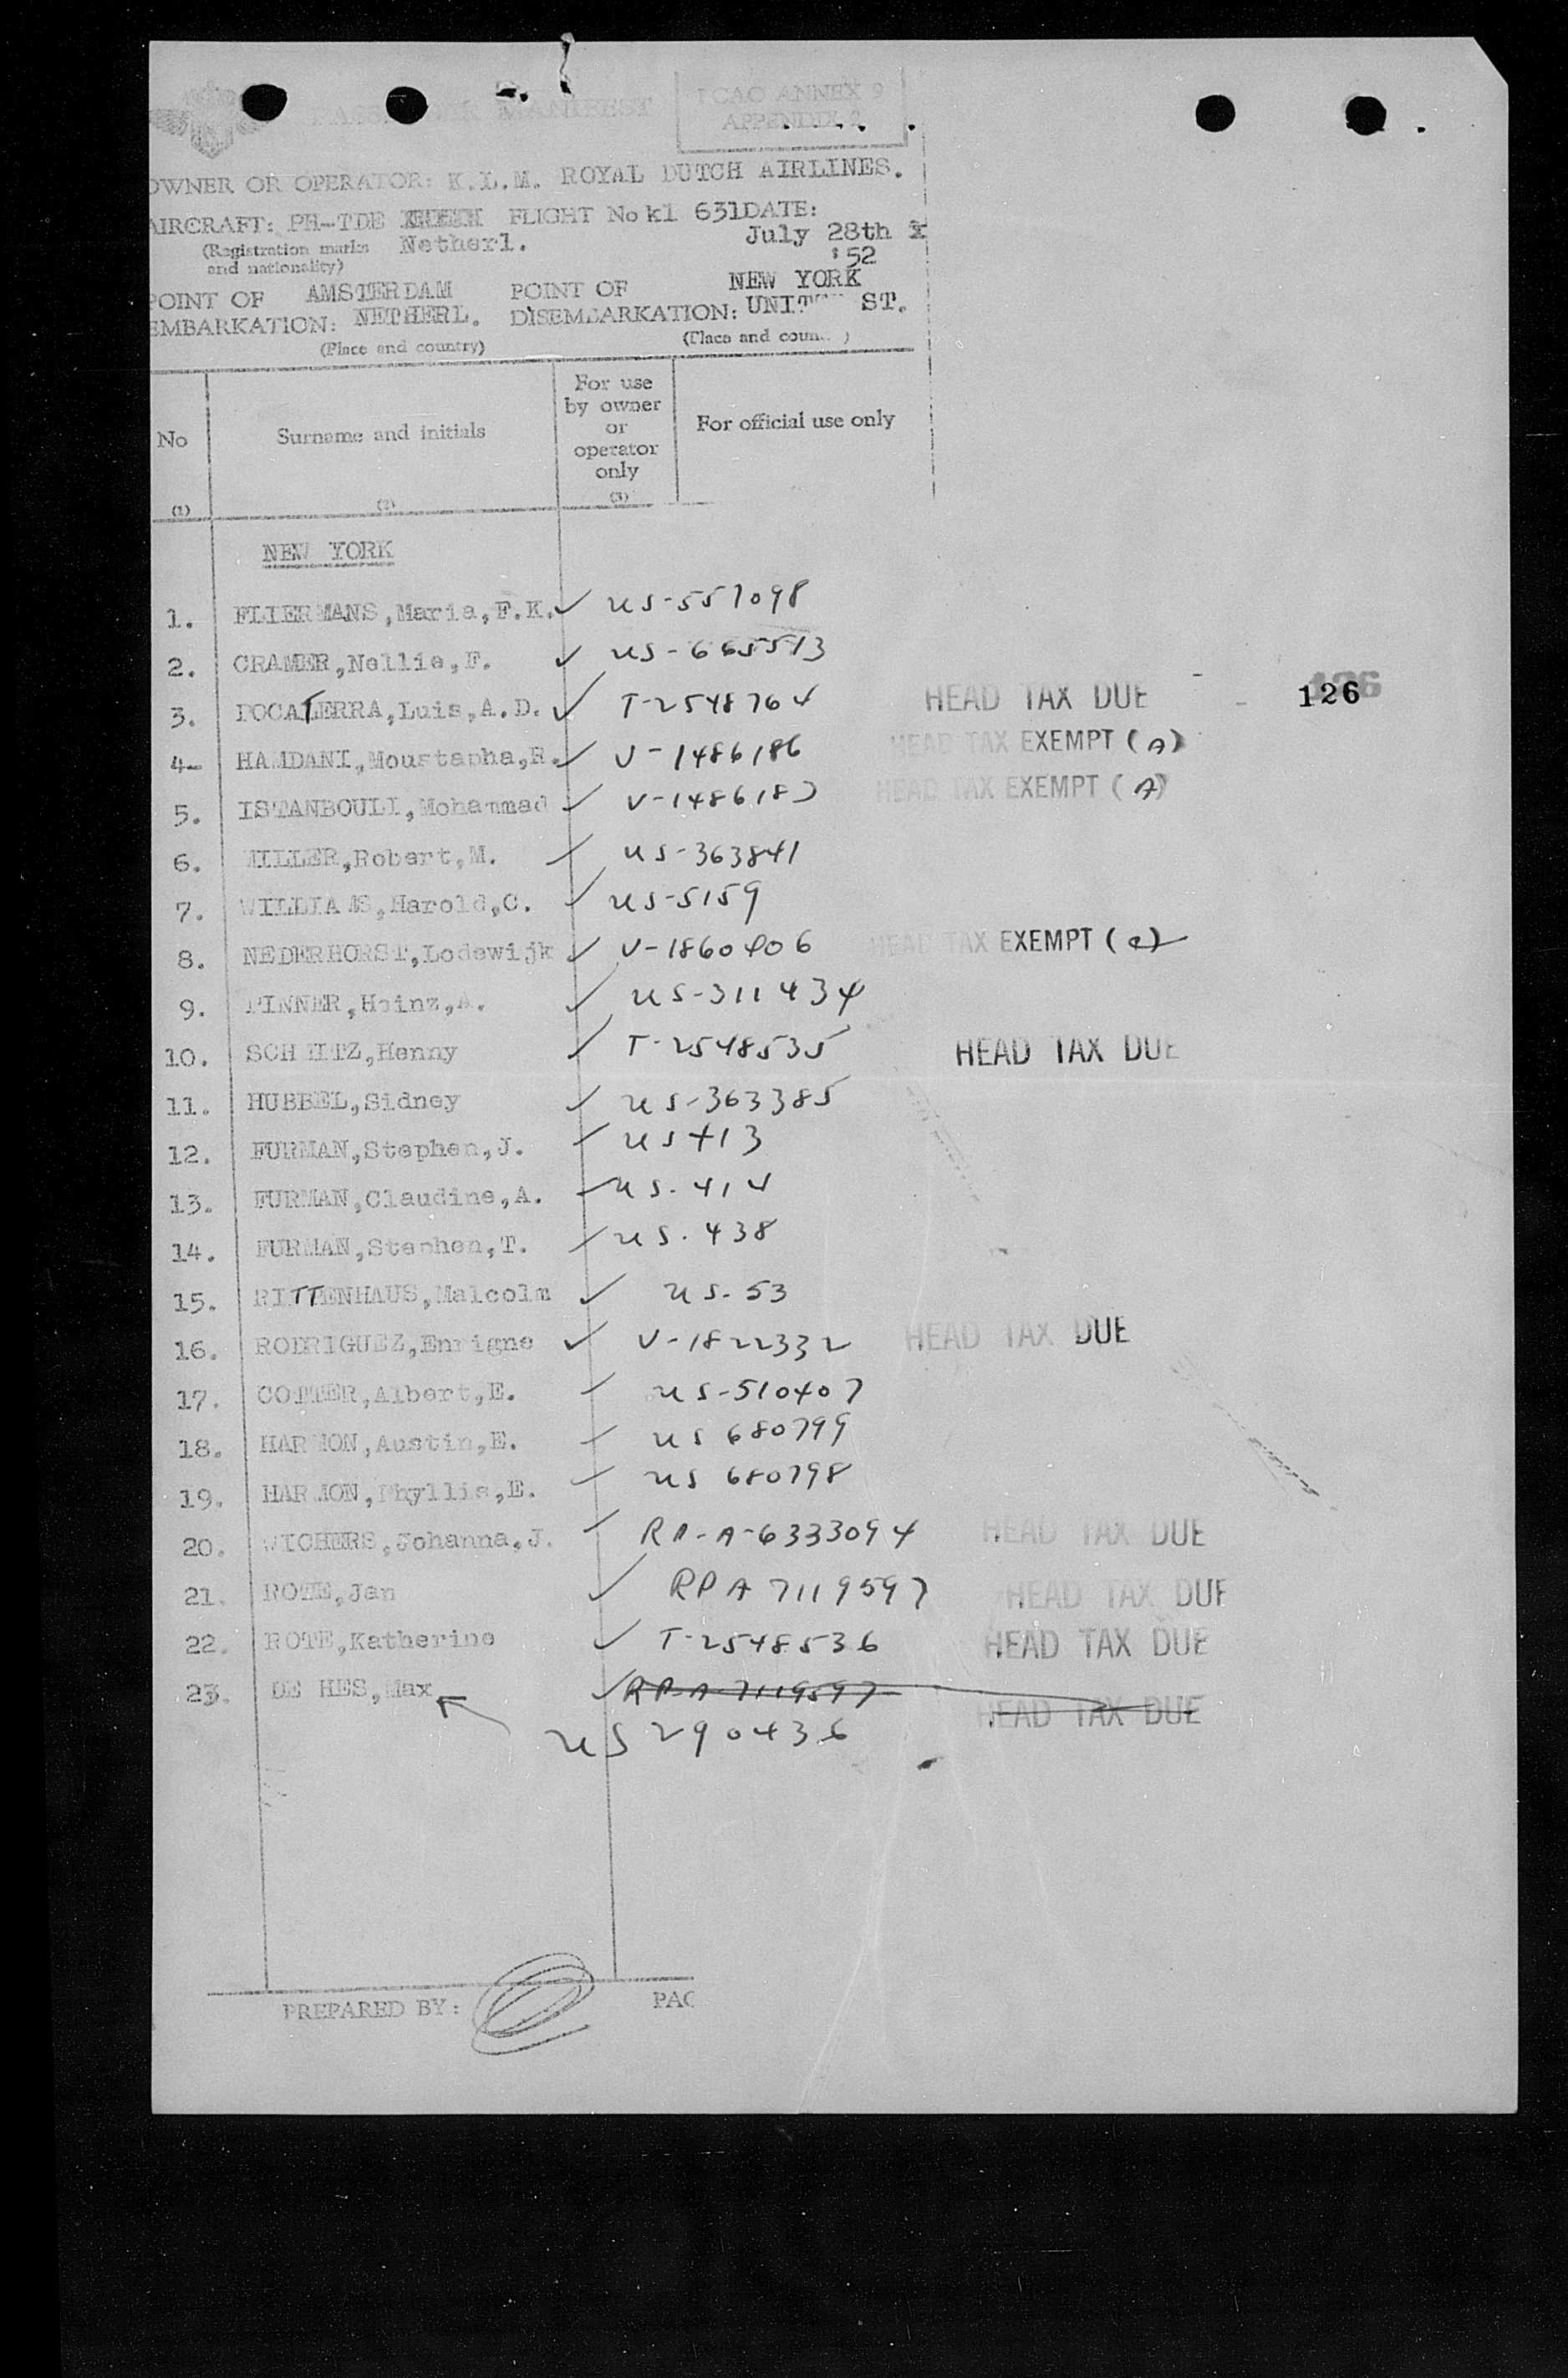 PASSENGER MANIFEST
ICAO ANNEX 9
APPENDIX 2
OWNER OR OPERATOR: K.L.M. ROYAL DUTCH AIRLINES.
AIRCRAFT: PH-TDE FLIGHT No kl 631 DATE:
(Registration marks and nationality) Netherl.
July 28th
'52
POINT OF EMBARKATION: AMSTERDAM NETHERL.
POINT OF DISEMBARKATION: NEW YORK UNIT ST.
(Place and country)
(Place and coun )
No
Surname and initials
For use
by owner
or
operator
only
For official use only
(1) (2) (3)
NEW YORK
1. FLIERMANS, Maria, F.K. ✓ US-557098
2. CRAMER, Nellie, F. ✓ US-665513
3. POCATERRA, Luis, A.D. ✓ T-2548764 HEAD TAX DUE - 126
4- HAMDANI, Moustapha, R. ✓ V-1486186 HEAD TAX EXEMPT (A)
5. ISTANBOULI, Mohammad ✓ V-1486187 HEAD TAX EXEMPT (A)
6. MILLER, Robert, M. ✓ US-363841
7. WILLIAMS, Harold, C. ✓ US-5159
8. NEDERHORST, Lodewijk ✓ V-1860406 HEAD TAX EXEMPT (e)
9. PINNER, Heinz, A. ✓ US-311434
10. SCHMITZ, Henny ✓ T-2548535 HEAD TAX DUE
11. HUBBEL, Sidney ✓ US-363385
12. FURMAN, Stephen, J. ✓ US 413
13. FURMAN, Claudine, A. ✓ US. 414
14. FURMAN, Stephen, T. ✓ US. 438
15. RITTENHAUS, Malcolm ✓ US-53
16. RODRIGUEZ, Enrigne ✓ V-1822332 HEAD TAX DUE
17. COTTER, Albert, E. ✓ US-510407
18. HARMON, Austin, E. ✓ US 680799
19. HARMON, Phyllis, E. ✓ US 680798
20. WICHERS, Johanna, J. ✓ RP-A-6333094 HEAD TAX DUE
21. ROTE, Jan ✓ RPA 7119597 HEAD TAX DUE
22. ROTE, Katherine ✓ T-2548536 HEAD TAX DUE
23. DE HES, Max ✓ RP-A-7119597 HEAD TAX DUE
US 290436
PREPARED BY: PAG